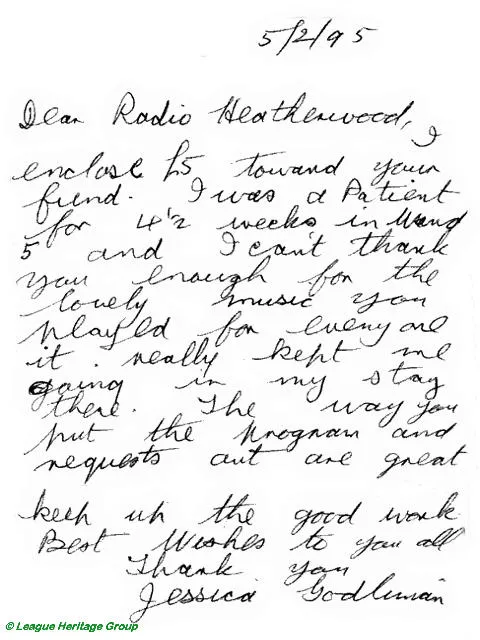 5/2/95
Dear Radio Heatherwood,
I
enclose £5 toward your
fund. I was a Patient
for 4 1/2 weeks in Ward
5 and I can't thank
you enough for the
lovely music you
played for every one
it really kept me
going in my stay
there. The way you
put the program and
requests out are great
keep up the good work
Best Wishes to you all
Thank you
Jessica Godliman
© League Heritage Group